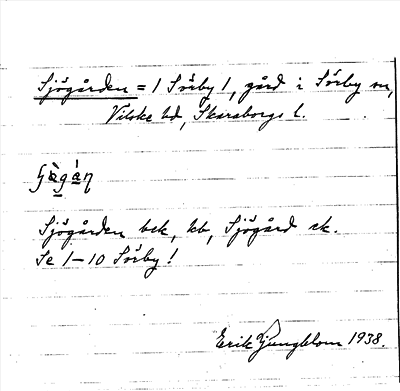 Sjögården = 1 Sörby 1, gård i Sörby sn,
Vilske hd, Skaraborgs l.
Sjögården bek, kb, Sjögård sk.
Se 1-10 Sörby!
Erik Ljungblom 1938.